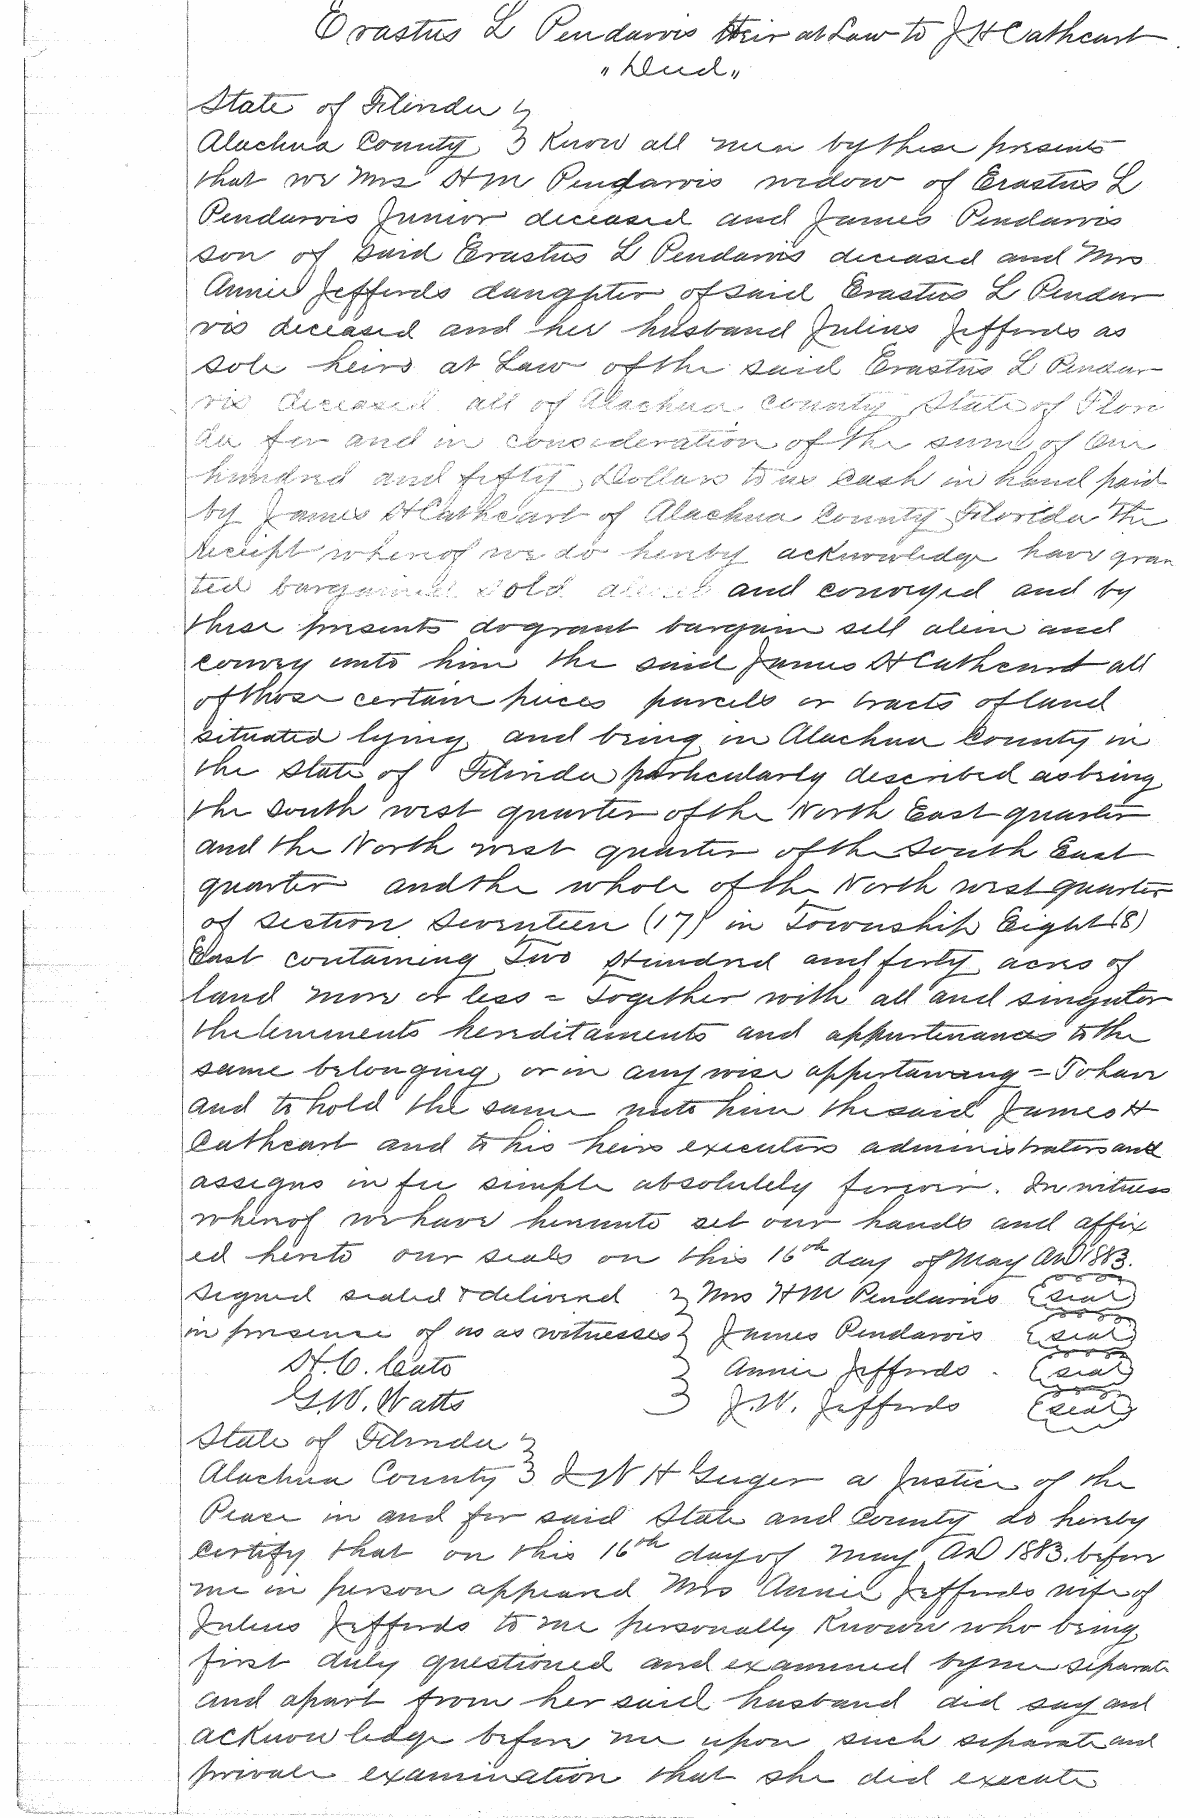 Erastus L Pendarvis Heir at Law to J H Cathcart
"Deed"
State of Florida }
Alachua County } Know all men by these presents
that we Mrs H M Pendarvis widow of Erastus L
Pendarvis Junior deceased and James Pendarvis
son of said Erastus L Pendarvis deceased and Mrs
Annie Jeffords daughter of said Erastus L Pendar
vis deceased and her husband Julius Jeffords as
sole heirs at Law of the said Erastus L Pendar
vis deceased all of Alachua county State of Flori
da for and in consideration of the sum of One
hundred and fifty Dollars to us cash in hand paid
by James H Cathcart of Alachua County Florida the
receipt whereof we do hereby acknowledge have gran
ted bargained sold aliened and conveyed and by
these presents do grant bargain sell alien and
convey unto him the said James H Cathcart all
of those certain pieces parcels or tracts of land
situated lying and being in Alachua County in
the State of Florida particularly described as being
the South west quarter of the North East quarter
and the North west quarter of the South East
quarter and the whole of the North west quarter
of section Seventeen (17) in Township Eight (8)
East containing Two Hundred and forty acres of
land more or less = Together with all and singular
the tenements hereditaments and appurtenances to the
same belonging or in any wise appertaining = To have
and to hold the same unto him the said James H
Cathcart and to his heirs executors administrators and
assigns in fee simple absolutely forever. In witness
whereof we have hereunto set our hands and affix
ed hereto our seals on this 16th day of May AD 1883.
Signed sealed & delivered } Mrs H M Pendarvis (seal)
in presence of us as witnesses } James Pendarvis (seal)
H. C. Cato } Annie Jeffords. (seal)
G. W. Watts } J. W. Jeffords (seal)
State of Florida }
Alachua County } I W H Geiger a Justice of the
Peace in and for said State and County do hereby
certify that on this 16th day of May AD 1883. before
me in person appeared Mrs Annie Jeffords wife of
Julius Jeffords to me personally known who being
first duly questioned and examined by me separate
and apart from her said husband did say and
acknowledge before me upon such separate and
private examination that she did execute